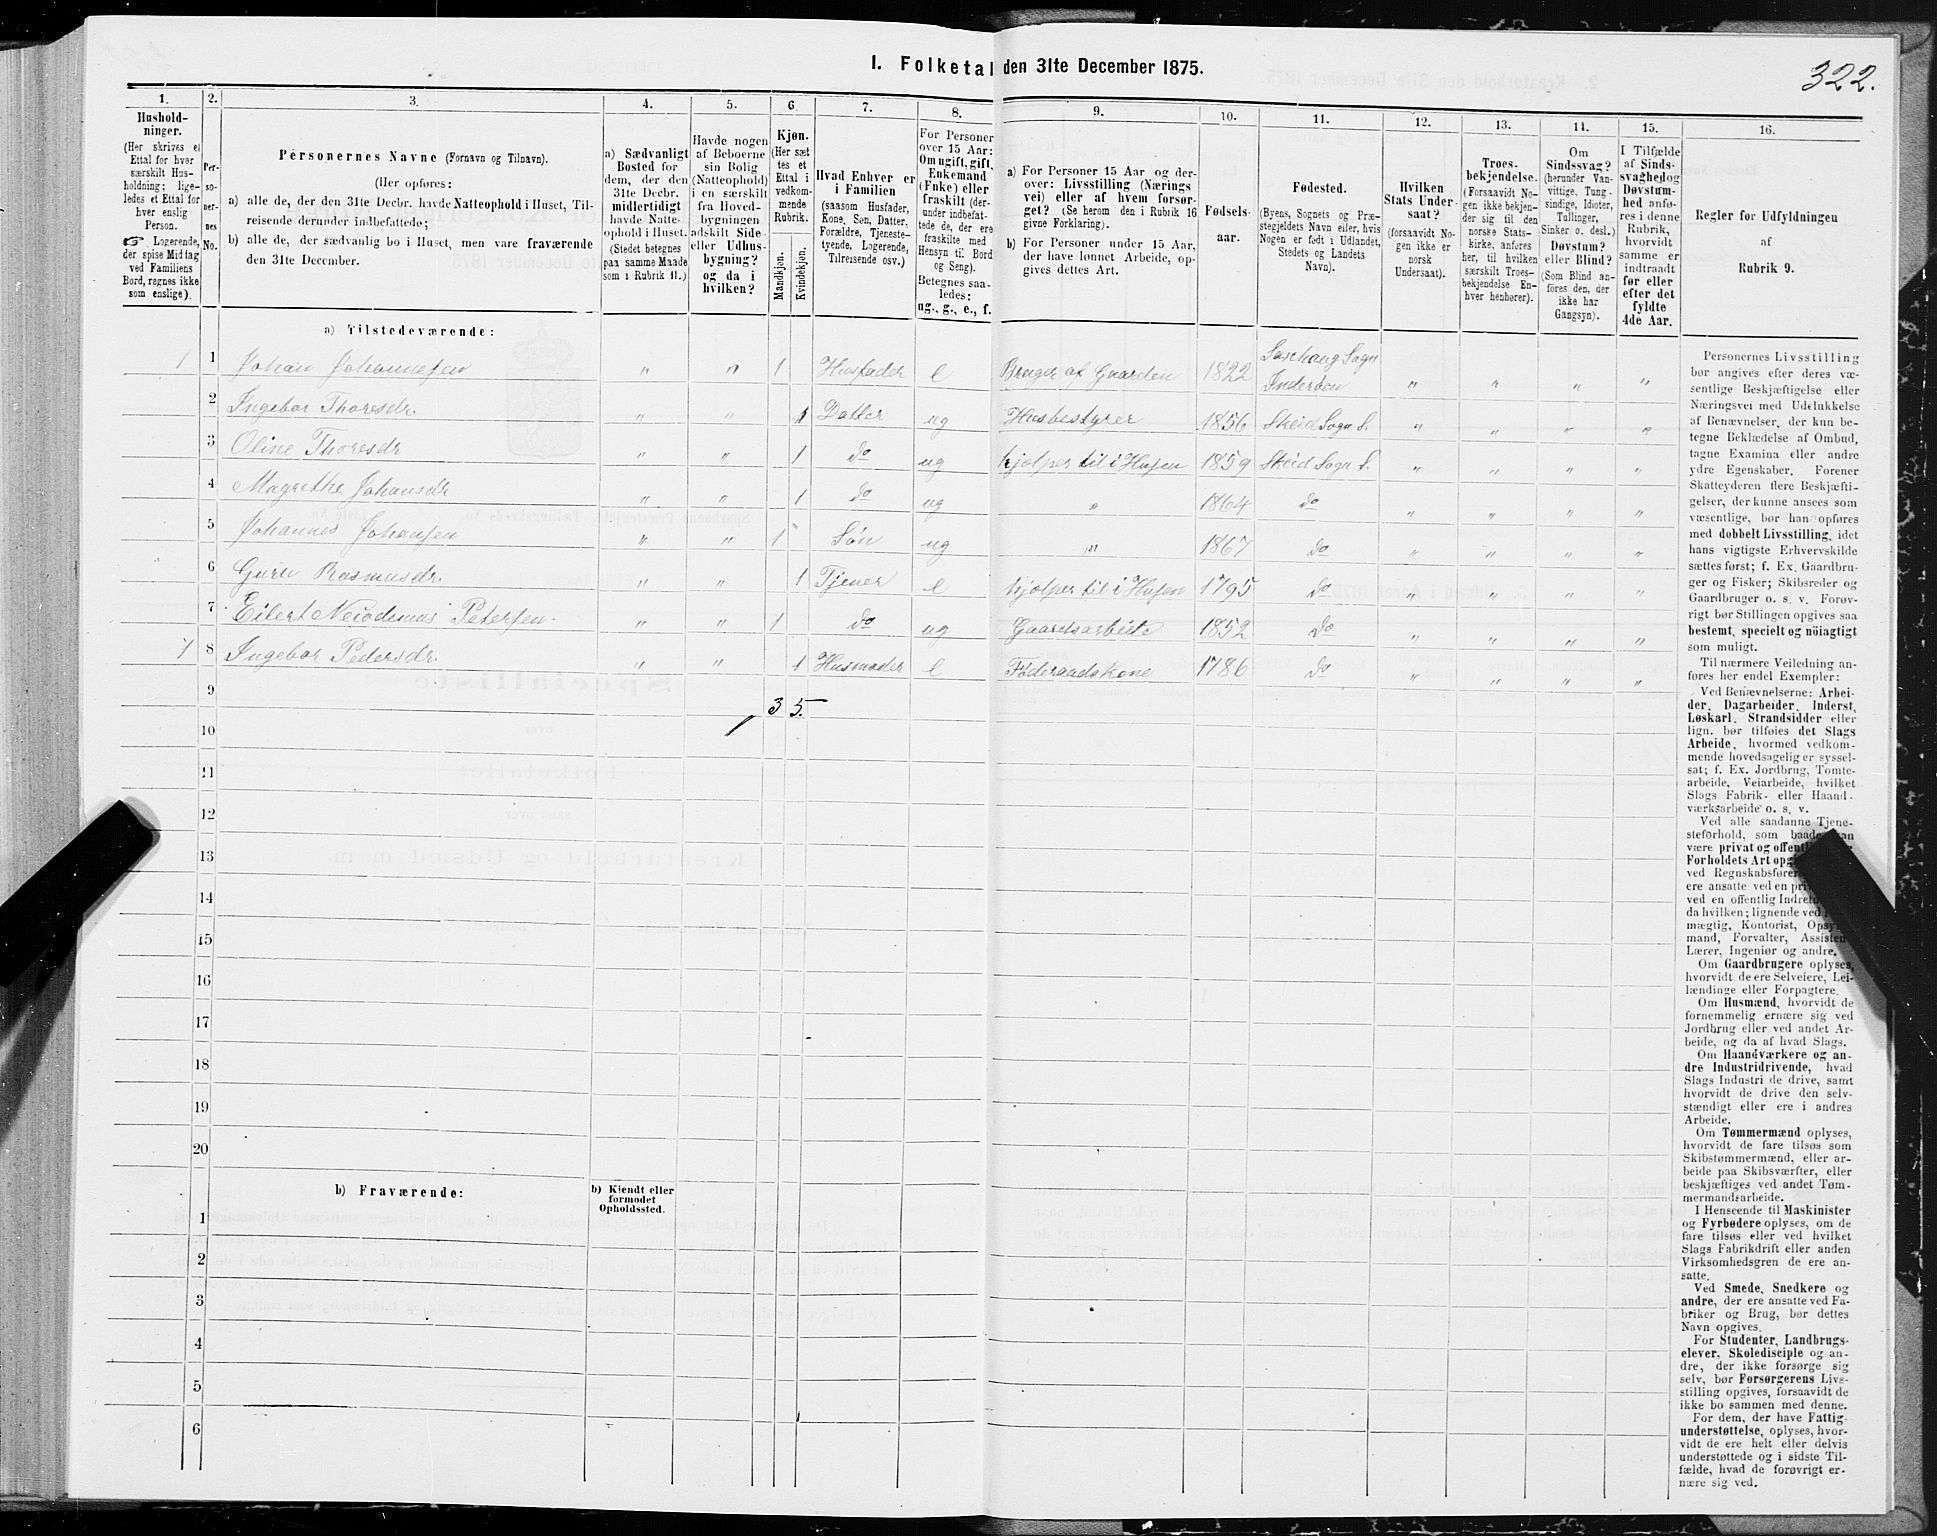 I. Folketal den 31te December 1875.
322.
1.
Hushold-
ninger.
(Her skrives et
Ettal for hver
særskilt Hus-
holdning; lige-
ledes et Ettal for
hver enslig
Person.
☞ Logerende,
der spise Middag
ved Familiens
Bord, regnes ikke
som enslige).
2.
Per-
so-
ner-
nes
No.
3.
Personernes Navne (Fornavn og Tilnavn).
(Her opføres:
a) alle de, der den 31te Decbr. havde Natteophold i Huset, Til-
reisende derunder indbefattede;
b) alle de, der sædvanlig bo i Huset, men vare fraværende
den 31te December.
4.
a) Sædvanligt
Bosted for
dem, der den
31te Decbr.
midlertidigt
havde Natte-
ophold i Huset.
(Stedet betegnes
paa samme Maade
som i Rubrik 11.)
5.
Havde nogen
af Beboerne
sin Bolig
(Natteophold)
i en særskilt
fra Hoved-
bygningen
adskilt Side-
eller Udhus-
bygning?
og da i
hvilken?
6.
Kjøn.
(Her sæt
tes et
Ettal i
vedkom-
mende
Rubrik.
Mandkjøn.
Kvindekjøn.
7.
Hvad Enhver er
i Familien
(saasom Husfader,
Kone, Søn, Datter,
Forældre, Tjeneste-
tyende, Logerende,
Tilreisende osv.)
8.
For Personer
over 15 Aar:
Om ugift, gift,
Enkemand
(Enke) eller
fraskilt (der-
under indbefat-
tede de, der ere
fraskilte med
Hensyn til Bord
og Seng).
Betegnes saa-
ledes:
ug., g., e., f.
9.
a) For Personer 15 Aar og der-
over: Livsstilling (Nærings
vei) eller af hvem forsør-
get? (Se herom den i Rubrik 16
givne Forklaring).
b) For Personer under 15 Aar,
der have lønnet Arbeide, op-
gives dettes Art.
10.
Fødsels-
aar.
11.
Fødested.
(Byens, Sognets og Præ-
stegjeldets Navn eller, hvis
Nogen er født i Udlandet,
Stedets og Landets
Navn).
12.
Hvilken
Stats Under-
saat?
(forsaavidt No-
gen ikke er
norsk
Undersaat).
13.
Troes-
bekjendelse.
(Forsaavidt No-
gen ikke bekjen-
der sig til den
norske Stats-
kirke, anføres
her, til hvilken
særskilt Troes-
bekjendelse En-
hver henhører).
14.
Om
Sindssvag?
(herunder Van-
vittige, Tung-
sindige, Idioter,
Tullinger,
Sinker o. desl.)
Døvstum?
eller Blind?
(Som Blind an-
føres den, der
ikke har
Gangsyn).
15.
I Tilfælde
af Sinds-
svaghed og
Døvstum-
hed anfø-
res i denne
Rubrik,
hvorvidt
samme er
indtraadt
før eller
efter det
fyldte
4de Aar.
16.
Regler for Udfyldningen
af
Rubrik 9.
a) Tilstedeværende:
1 1 Johan Johannesen " " 1 Husfader e Bruger af Gaarden 1822 Sogn Inderøen " " " "
2 Ingebor Thoresdr. " " 1 Datter ug Husbestyrer 1856 Skeid Sogn S. " " " "
3 Oline Thoresdr " " 1 do ug hjelper til i Husen 1859 Skeid Sogn S. " " " "
4 Magrethe Johansdr " " 1 do ug " 1864 do " " " "
5 Johannes Johansen " " 1 Søn ug " 1867 do " " " "
6 Guru Rasmusdr. " " 1 Tjener e hjelper til i Husen 1795 do " " " "
7 Eilert Petersen. " " 1 do ug Gaardsarbeide 1852 do " " " "
1 8 Ingebor Pedersdr. " " 1 Husmoder e Føderaadskone 1786 do " " " "
9
3 5.
10
11
12
13
14
15
16
17
18
19
20
b) Fraværende:
b) Kjendt eller
formodet
Opholdssted.
1
2
3
4
5
6
Personernes Livsstilling
bør angives efter deres væ-
sentlige Beskjæftigelse eller
Næringsvei med Udelukkelse
af Benævnelser, der kun be-
tegne Beklædelse af Ombud,
tagne Examina eller andre
ydre Egenskaber. Forener
Skatteyderen flere Beskjæfti-
gelser, der kunne ansees som
væsentlige, bør han opføres
med dobbelt Livsstilling, idet
hans vigtigste Erhvervskilde
sættes først; f. Ex. Gaardbru-
ger og Fisker; Skibsreder og
Gaardbruger o. s. v. Forøv-
rigt bør Stillingen opgives saa
bestemt, specielt og nöiagtigt
som muligt.
Til nærmere Veiledning an-
føres her endel Exempler:
Ved Benævnelserne: Arbei-
der, Dagarbeider, Inderst,
Løskarl, Strandsidder eller
lign. bør tilføies det Slags
Arbeide, hvormed vedkom-
mende hovedsagelig er syssel-
sat; f. Ex. Jordbrug, Tomte-
arbeide, Veiarbeide, hvilket
Slags Fabrik- eller Haand-
værksarbeide o. s. v.
Ved alle saadanne Tjene-
steforhold, som baade kan
være privat og offentligt, bør
Forholdets Art
ved
ere ansatte ved en
ved en offentlig
da hvilken; lignende ved
mægtig, Kontorist,
mand, Forvalter,
Lærer, Ingeniør og andre.
Om Gaardbrugere oplyses,
hvorvidt de ere Selveiere, Lei-
lændinge eller Forpagtere.
Om Husmænd, hvorvidt de
fornemmelig ernære sig ved
Jordbrug eller ved andet Ar-
beide, og da af hvad Slags.
Om Haandværkere og an-
dre Industridrivende, hvad
Slags Industri de drive, samt
hvorvidt de drive den selv-
stændigt eller ere i andres
Arbeide.
Om Tømmermænd oplyses,
hvorvidt de fare tilsøs som
Skibstømmermænd, eller ar-
beide paa Skibsværfter, eller
beskjæftiges ved andet Tøm-
mermandsarbeide.
I Henseende til Maskinister
og Fyrbødere oplyses, om de
fare tilsøs eller ved hvilket
Slags Fabrikdrift eller anden
Virksomhedsgren de ere an-
satte.
Ved Smede, Snedkere og
andre, der ere ansatte ved Fa-
briker og Brug, bør dettes
Navn opgives.
For Studenter, Landbrugs-
elever, Skoledisciple og an-
dre, der ikke forsørge sig
selv, bør Forsørgerens Livs-
stilling opgives, forsaavidt de
ikke bo sammen med denne.
For dem, der have Fattig-
understøttelse, oplyses, hvor-
vidt de ere helt eller delvis
understøttede og i sidste Til-
fælde, hvad de forøvrigt er-
nære sig ved.